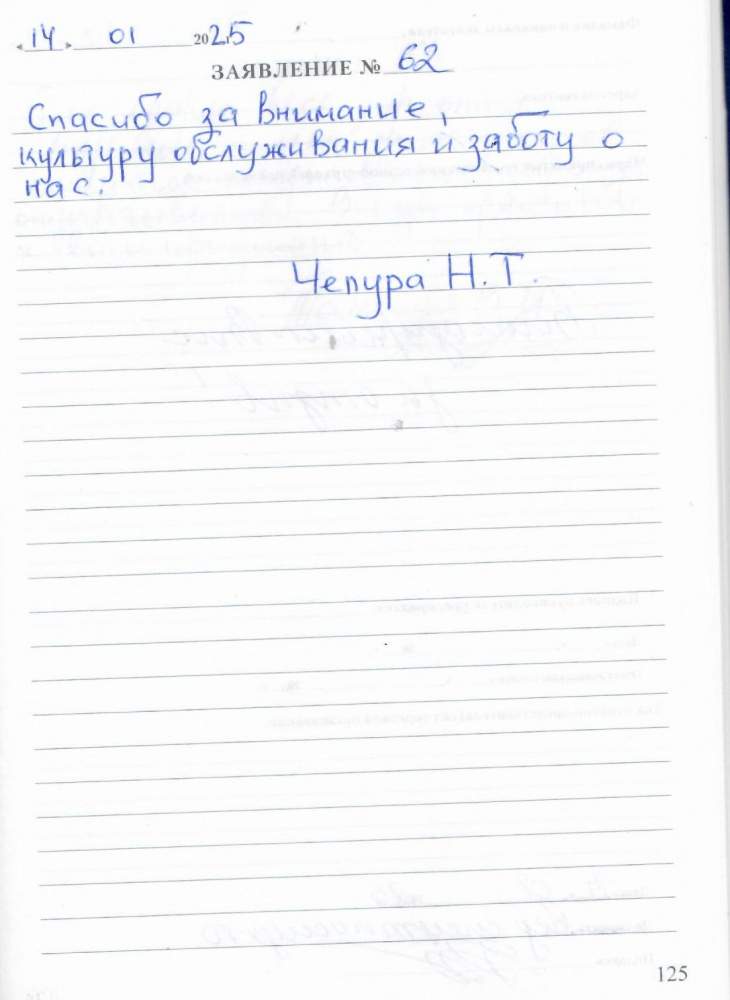 «14» 01 2025
ЗАЯВЛЕНИЕ № 62
Спасибо за внимание,
культуру обслуживания и заботу о
нас.
Чепура Н.Т.
125